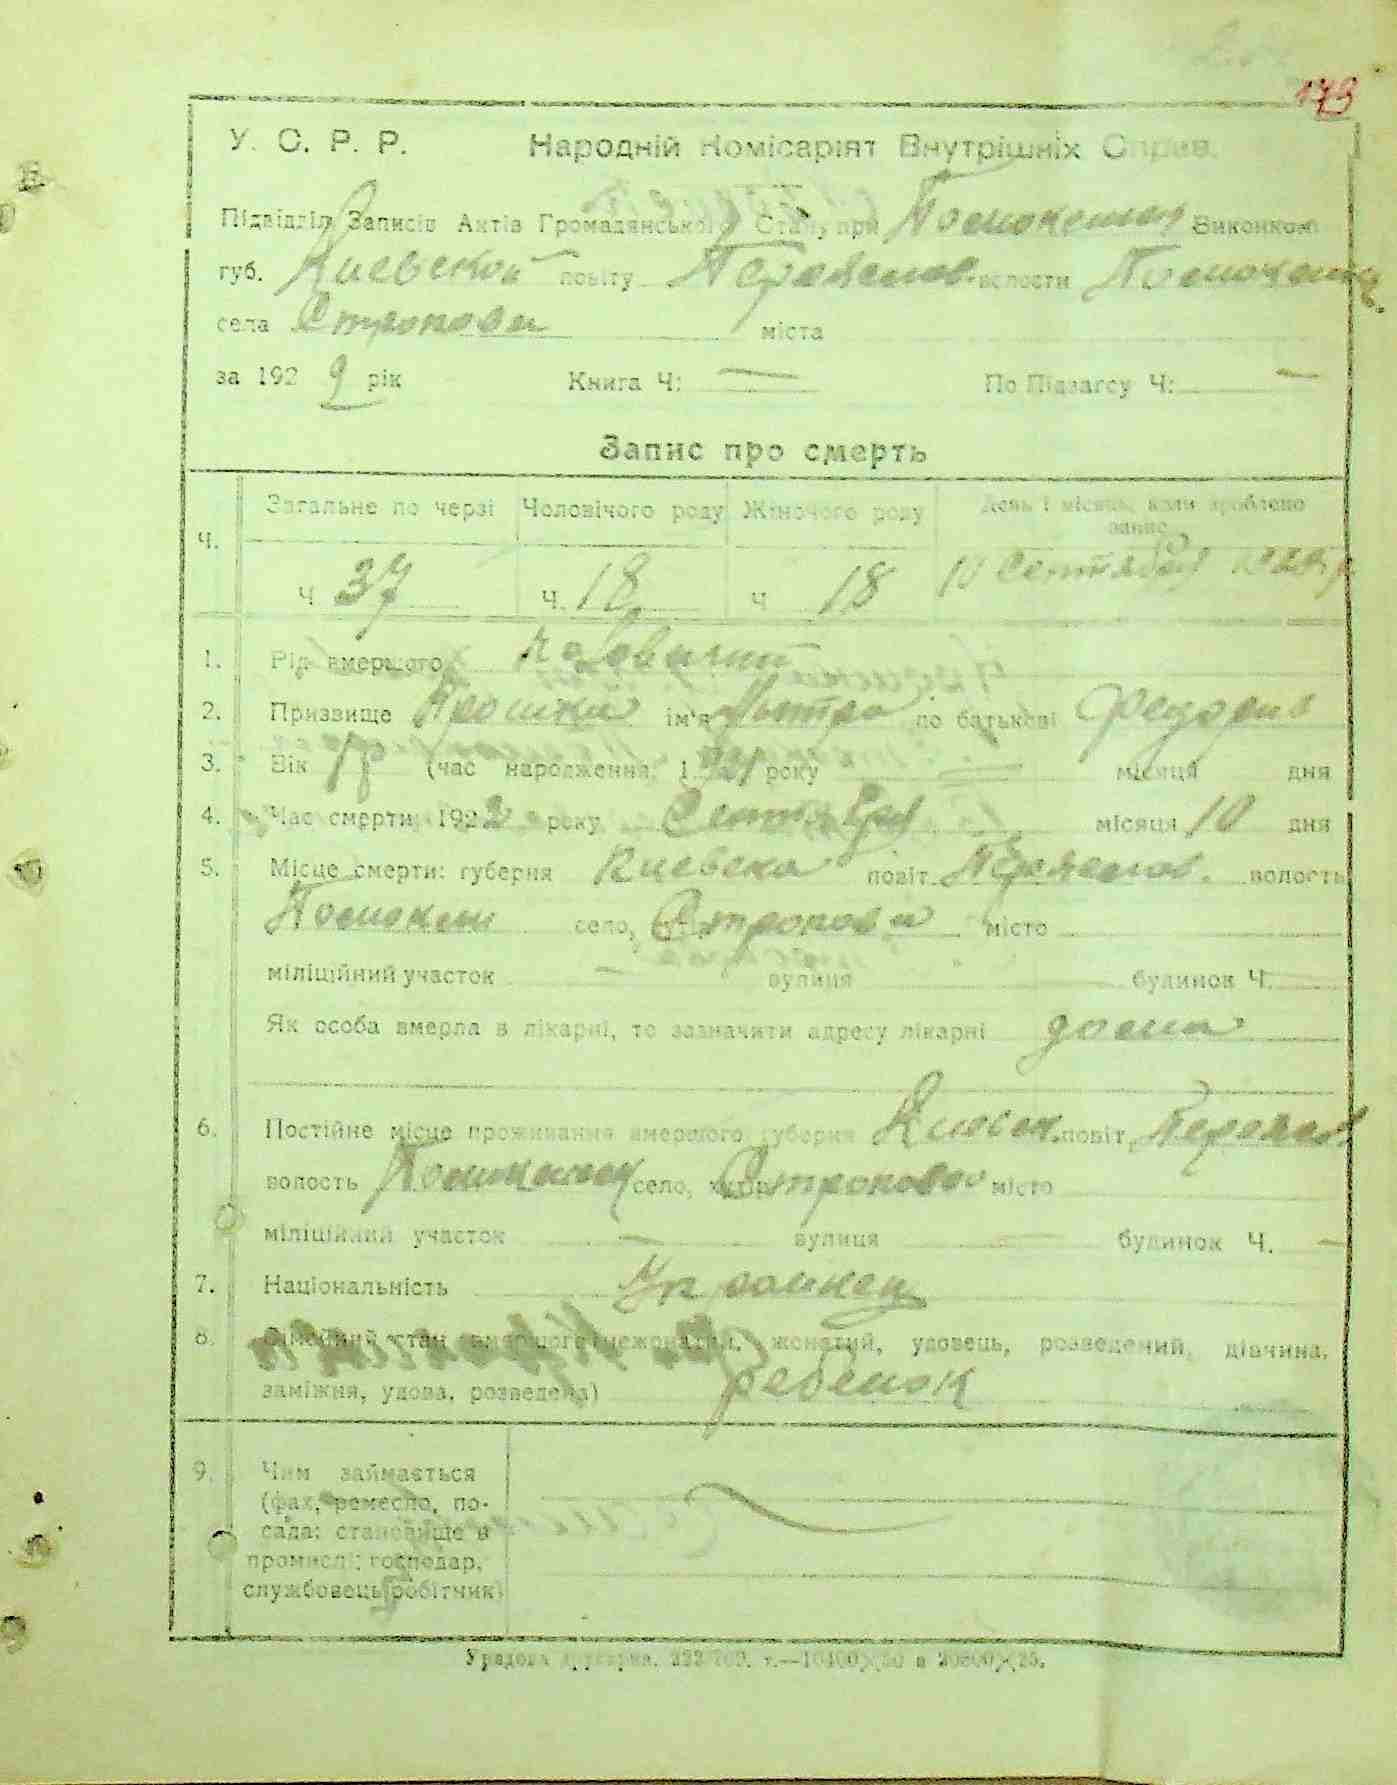 173
У. С. Р. Р. Народній Комісаріят Внутрішніх Справ.
Підвідділ Записів Актів Громадянського Стану при Виконком
губ. Киевской повіту Переяслов. волости
села Строкова міста
за 1929 рік Книга Ч: — По Підзагсу Ч: —
Запис про смерть
Ч. Загальне по черзі Чоловічого роду Жіночого роду День і місяць, коли зроблено запис
Ч 37 Ч. 18 Ч 18 10 Сентября
1. Рід вмершого
2. Призвище ім'я по батькові
3. Вік (час народження: 1921 року — місяця дня
4. Час смерти 1922 року Сентября місяця 10 дня
5. Місце смерти: губерня Киевска повіт Переяслов. волость
село, Строкова місто
міліційний участок — вулиця будинок Ч.
Як особа вмерла в лікарні, то зазначити адресу лікарні дома
6. Постійне місце проживання вмершого губерня Киевск. повіт Переясл
волость село, Строково місто
міліційний участок — вулиця будинок Ч. —
7. Національність Украинец
8. Сімейний стан вмершого (нежонатий, жонатий, удовець, розведений, дівчина,
заміжня, удова, розведена) ребенок
9. Чим займається
(фах, ремесло, по-
сада: становище в
промислі: господар,
службовець робітник)
Урядова друкарня.